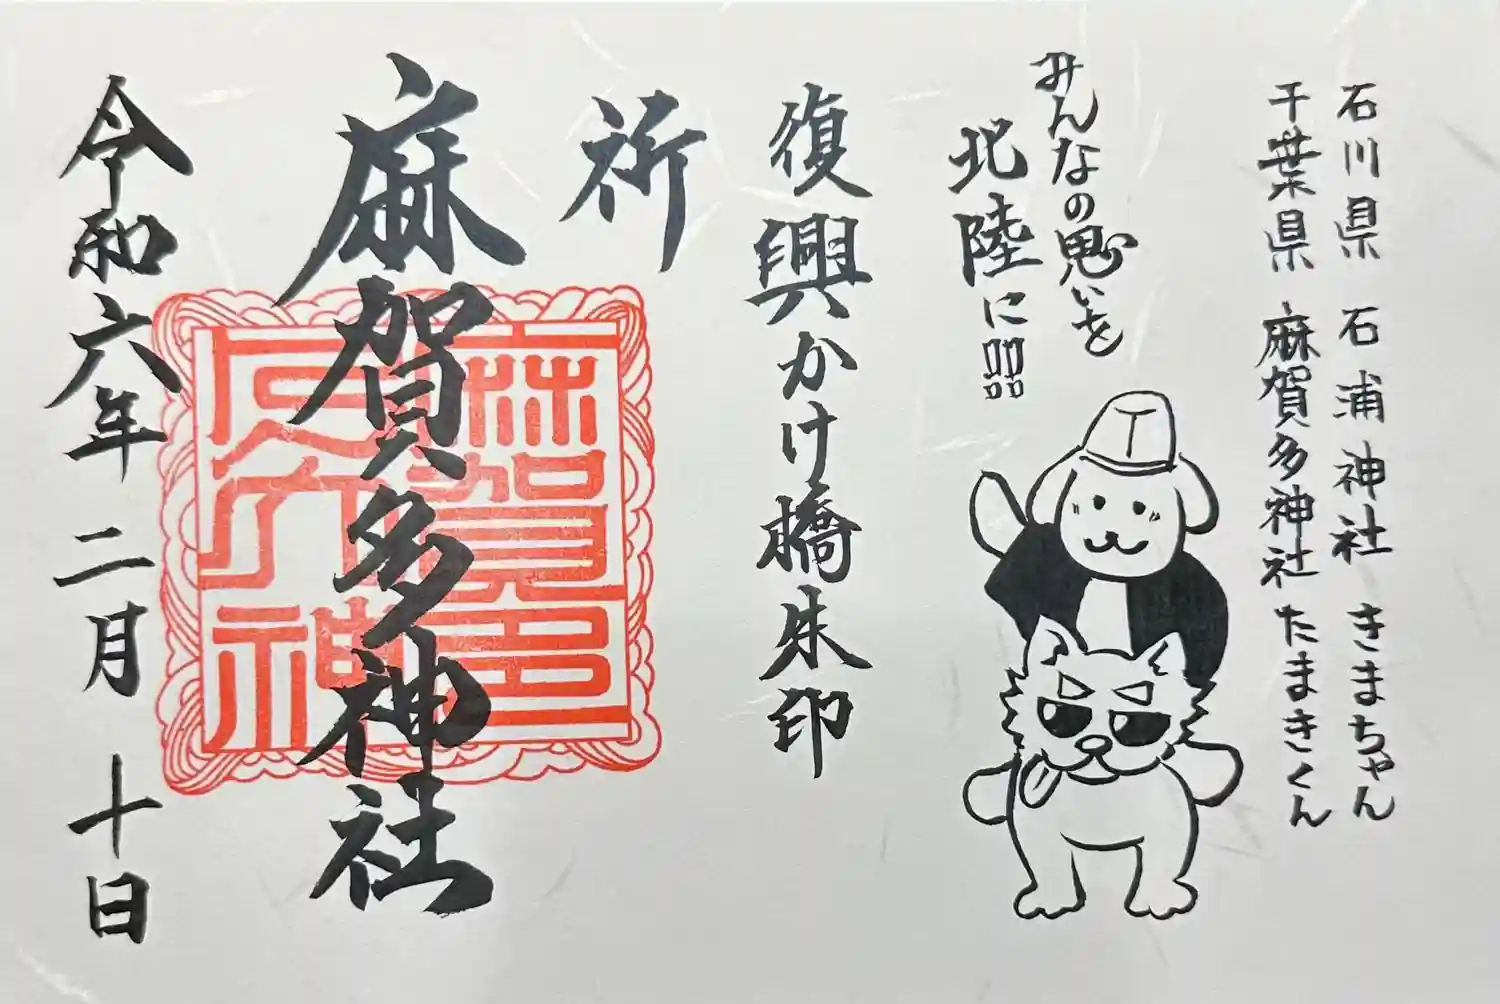 石川県 石浦神社 きまちゃん
千葉県 麻賀多神社 たまきくん
みんなの思いを
北陸に!!!
復興かけ橋朱印
祈
麻賀多神社
令和六年 二月 十日
T
麻賀多
神